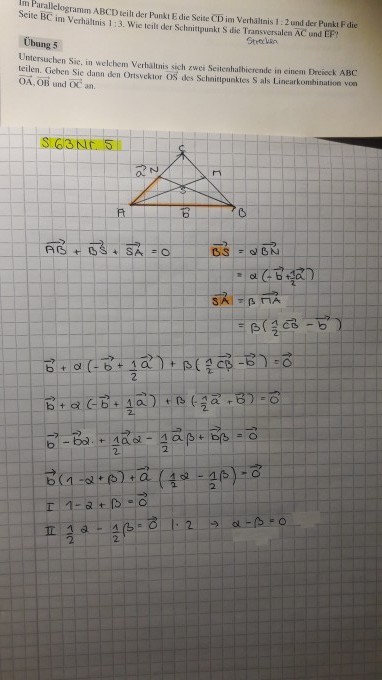 Im Parallelogramm ABCD teilt der Punkt E die Seite CD im Verhältnis 1 : 2 und der Punkt F die
Seite BC im Verhältnis 1 : 3. Wie teilt der Schnittpunkt S die Transversalen AC und EF?
Strecken
Übung 5
Untersuchen Sie, in welchem Verhältnis sich zwei Seitenhalbierende in einem Dreieck ABC
teilen. Geben Sie dann den Ortsvektor OS des Schnittpunktes S als Linearkombination von
OA, OB und OC an.
S 63 Nr. 5
C
a⃗ N M
S
A b⃗ B
AB + BS + SA = 0 BS = α BN
= α (-b⃗ + 1/2 a⃗)
SA = β MA
= β (1/2 CB - b⃗)
b⃗ + α (-b⃗ + 1/2 a⃗) + β (1/2 CB - b⃗) = 0⃗
b⃗ + α (-b⃗ + 1/2 a⃗) + β (-1/2 a⃗ + b⃗) = 0⃗
b⃗ - b⃗α + 1/2 a⃗ α - 1/2 a⃗ β + b⃗β = 0⃗
b⃗ (1 - α + β) + a⃗ (1/2 α - 1/2 β) = 0⃗
I 1 - α + β = 0⃗
II 1/2 α - 1/2 β = 0⃗ | · 2 → α - β = 0